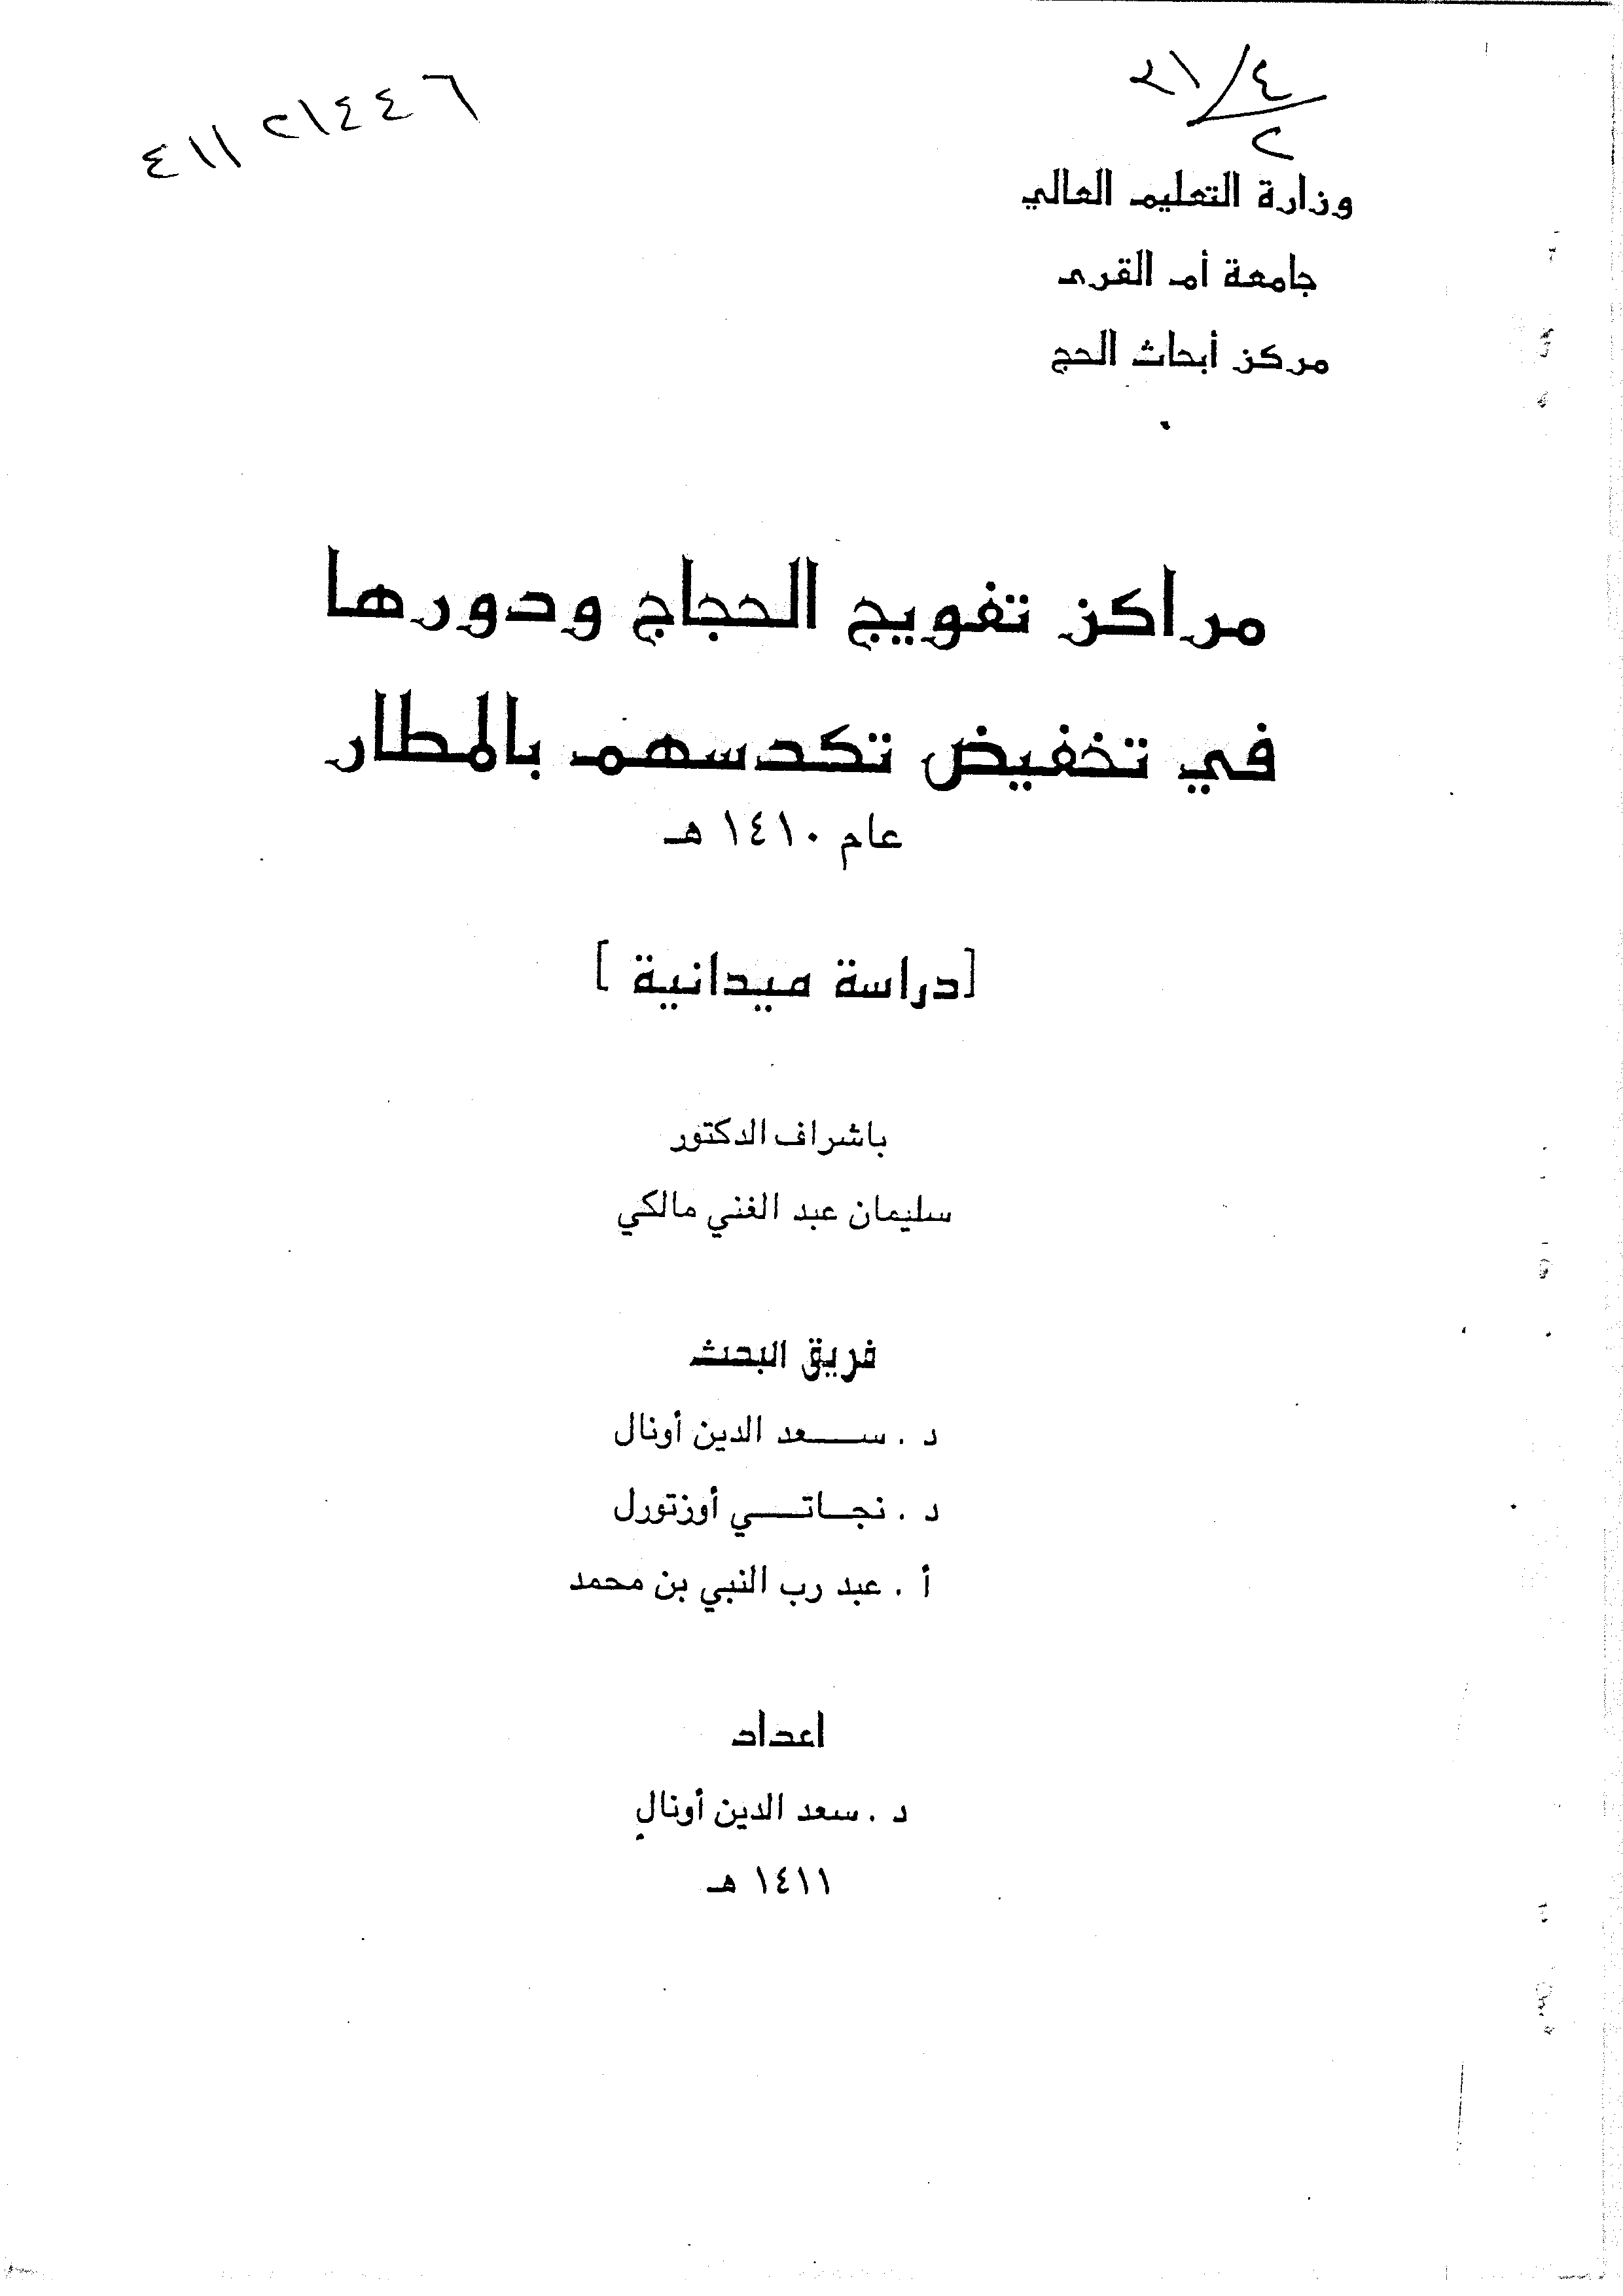 ٢١/٤
٢
٤١١٢١٤٤٦
وزارة التعليم العالي
جامعة أم القرى
مركز أبحاث الحج
مراكز تفويج الحجاج ودورها
في تخفيض تكدسهم بالمطار
عام ١٤١٠ هـ
[دراسة ميدانية]
باشراف الدكتور
سليمان عبد الغني مالكي
فريق البحث
د . ســعد الدين أونال
د . نجــاتــي أوزتورل
أ . عبد رب النبي بن محمد
اعداد
د . سعد الدين أونال
١٤١١ هـ